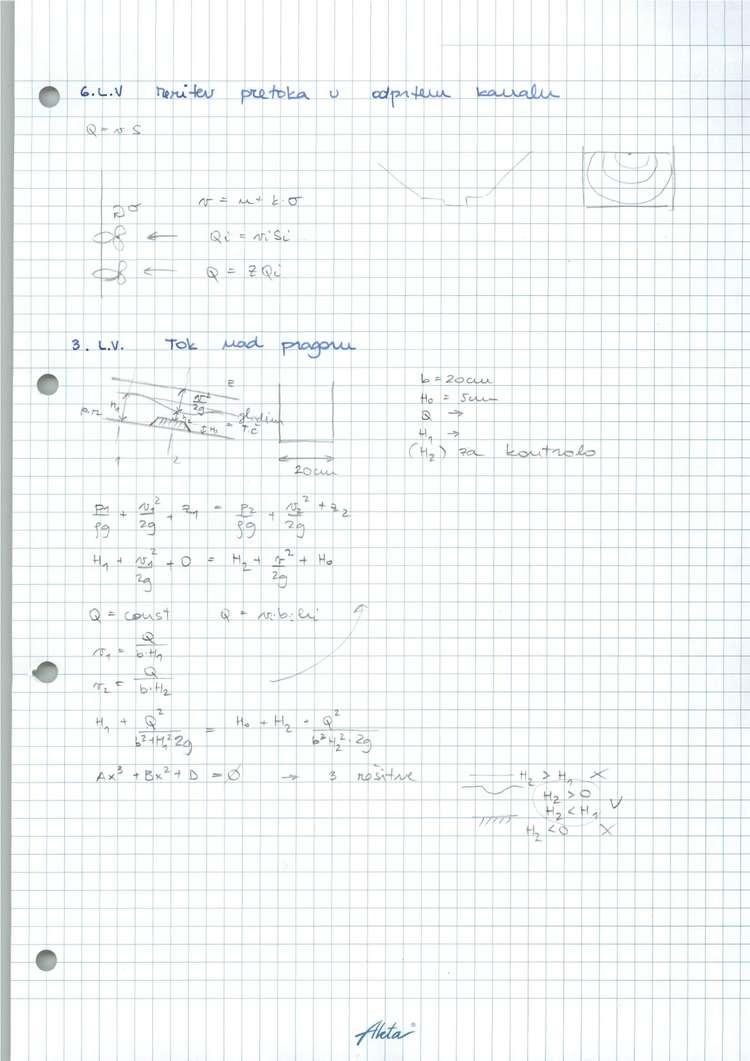 6. L.V meritev pretoka v odprtem kanalu
Q = v·S
v = n + k·σ
Qi = viSi
Q = ΣQi
3. L.V. Tok nad pragom
E
v²/2g
H1
p.r.
H2
H0
gladina
T.Č
1 2
20cm
b = 20cm
H0 = 5cm
Q →
H1 →
(H2) za kontrolo
p1/ρg + v1²/2g + z1 = p2/ρg + v2²/2g + z2
H1 + v1²/2g + 0 = H2 + v²/2g + H0
Q = const Q = v·b·Hi
v1 = Q/b·H1
v2 = Q/b·H2
H1 + Q²/b²+H1²2g = H0 + H2 + Q²/b²H2²·2g
Ax³ + Bx² + D = 0 → 3 rešitve
H2 > H1 X
H2 > 0
H2 < H1 V
H2 < 0 X
Akta